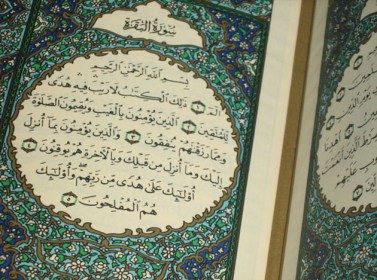 سُورَةُ الْبَقَرَةِ
بِسْمِ اللَّهِ الرَّحْمَنِ الرَّحِيمِ
الم ١ ذَلِكَ الْكِتَابُ لَا رَيْبَ فِيهِ هُدًى
لِلْمُتَّقِينَ ٢ الَّذِينَ يُؤْمِنُونَ بِالْغَيْبِ وَيُقِيمُونَ الصَّلَوةَ
وَمِمَّا رَزَقْنَاهُمْ يُنْفِقُونَ ٣ وَالَّذِينَ يُؤْمِنُونَ بِمَا أُنْزِلَ
إِلَيْكَ وَمَا أُنْزِلَ مِنْ قَبْلِكَ وَبِالْآخِرَةِ هُمْ يُوقِنُونَ ٤
أُولَٰئِكَ عَلَى هُدًى مِنْ رَبِّهِمْ وَأُولَٰئِكَ
هُمُ الْمُفْلِحُونَ ٥